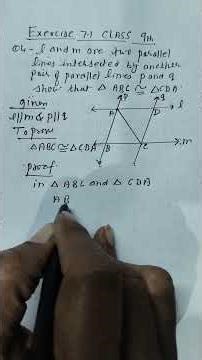 Exercise 7.1 CLASS 9th
Q4- l and m are two parallel
lines interseded by another
pair of parallel lines p and q
show that △ ABC ≅ △CDA
given
l||m & p||q
To prove
△ABC≅△CDA
proof
in △ ABC and △ CDA
AB
p
q
A
D
l
B
C
m